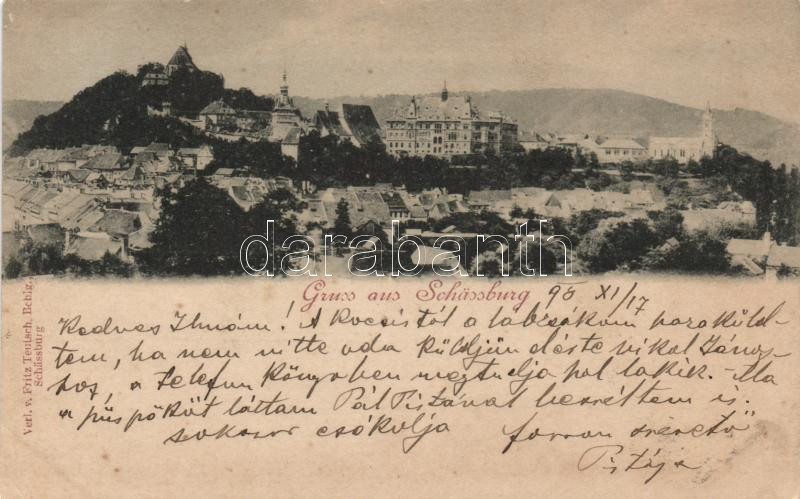 darabanth
Gruss aus Schässburg 98 XI/17
Verl. v. Fritz Teutsch, Bchlg.,
Schässburg
Kedves Ilmám! A kocsistól a lábzsákom haza küld-
tem, ha nem vitte oda küldjön délste János-
hoz, a telefon könyvben megtudja hol lakik. - Ma
a püspököt láttam Pál Pistával beszéltem is.
sokszor csókolja forron szerető
Pistája